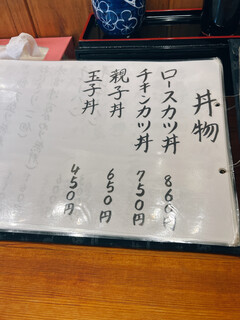 丼物
ロースカツ丼 860円
チキンカツ丼 750円
親子丼 650円
玉子丼 450円